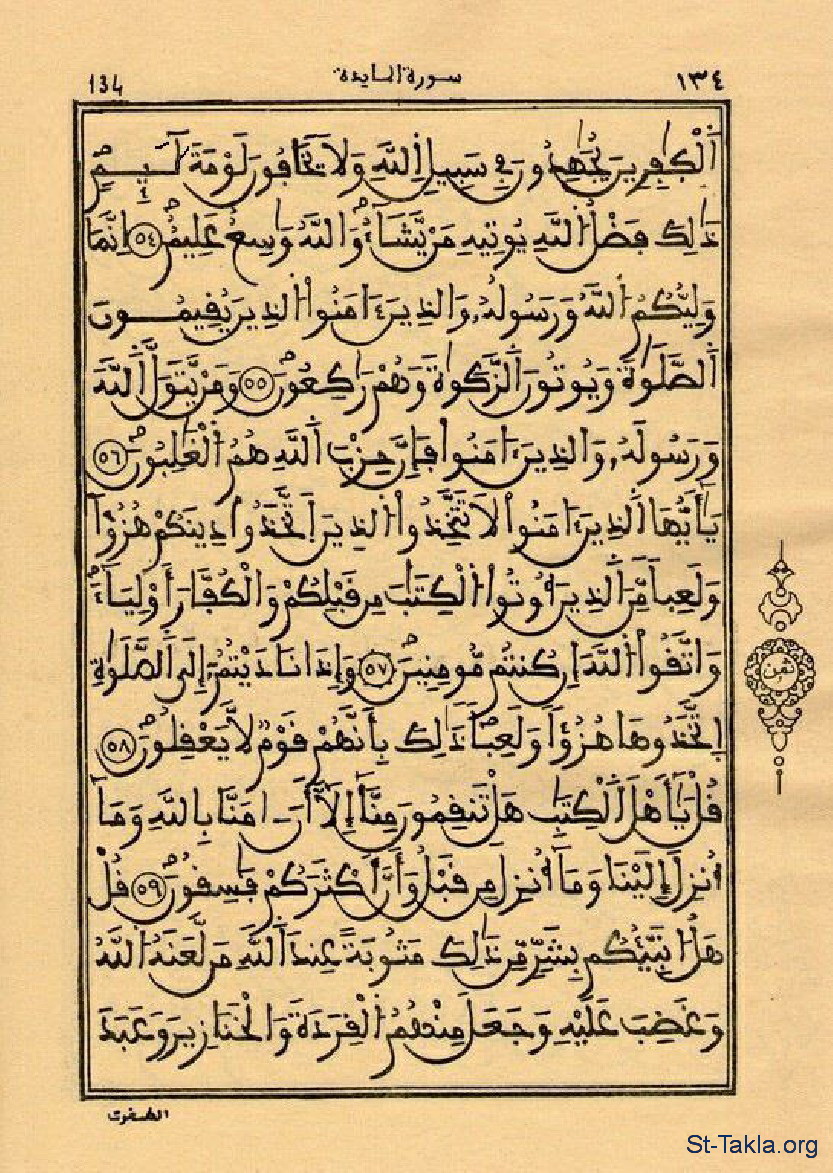 134 سورة المايدة ١٣٤
اَ۬لْكٰفِرِينَ يُجَٰهِدُونَ فِي سَبِيلِ اِ۬للَّهِ وَلَا يَخَافُونَ لَوْمَةَ لَآئِمٖ
ذَٰلِكَ فَضْلُ اُ۬للَّهِ يُوتِيهِ مَنْ يَّشَآءُ وَاللَّهُ وَٰسِعٌ عَلِيمٌ ٥٤ اِنَّمَا
وَلِيُّكُمُ اُ۬للَّهُ وَرَسُولُهُۥ وَالذِينَ ءَامَنُواْ اُ۬لذِينَ يُقِيمُونَ
اَ۬لصَّلَوٰةَ وَيُوتُونَ اَ۬لزَّكَوٰةَ وَهُمْ رَٰكِعُونَ ٥٥ وَمَنْ يَّتَوَلَّ اَ۬للَّهَ
وَرَسُولَهُۥ وَالذِينَ ءَامَنُواْ فَإِنَّ حِزْبَ اَ۬للَّهِ هُمُ اُ۬لْغَٰلِبُونَ ٥٦
يَٰٓأَيُّهَا اَ۬لذِينَ ءَامَنُواْ لَا تَتَّخِذُواْ اُ۬لذِينَ اَ۪تَّخَذُواْ دِينَكُمْ هُزُؤاٗ
وَلَعِباٗ مِّنَ اَ۬لذِينَ أُوتُواْ اُ۬لْكِتَٰبَ مِن قَبْلِكُمْ وَالْكُفَّارَ أَوْلِيَآءَ
وَاتَّقُواْ اُ۬للَّهَ إِن كُنتُم مُّومِنِينَ ٥٧ وَإِذَا نَادَيْتُمُۥٓ إِلَى اَ۬لصَّلَوٰةِ
اِ۪تَّخَذُوهَا هُزُؤاٗ وَلَعِباٗ ذَٰلِكَ بِأَنَّهُمْ قَوْمٌ لَّا يَعْقِلُونَ ٥٨
قُلْ يَٰٓأَهْلَ اَ۬لْكِتَٰبِ هَلْ تَنقِمُونَ مِنَّآ إِلَّآ أَنَ اٰمَنَّا بِاللَّهِ وَمَآ
أُنزِلَ إِلَيْنَا وَمَآ أُنزِلَ مِن قَبْلُ وَأَنَّ أَكْثَرَكُمْ فَٰسِقُونَ ٥٩ قُلْ
هَلُ ا۟نَبِّئُكُم بِشَرّٖ مِّن ذَٰلِكَ مَثُوبَةً عِندَ اَ۬للَّهِ مَن لَّعَنَهُ اُ۬للَّهُ
وَغَضِبَ عَلَيْهِ وَجَعَلَ مِنْهُمُ اُ۬لْقِرَدَةَ وَالْخَنَازِيرَ وَعَبَدَ
ثمن
الطٰغوت
St-Takla.org